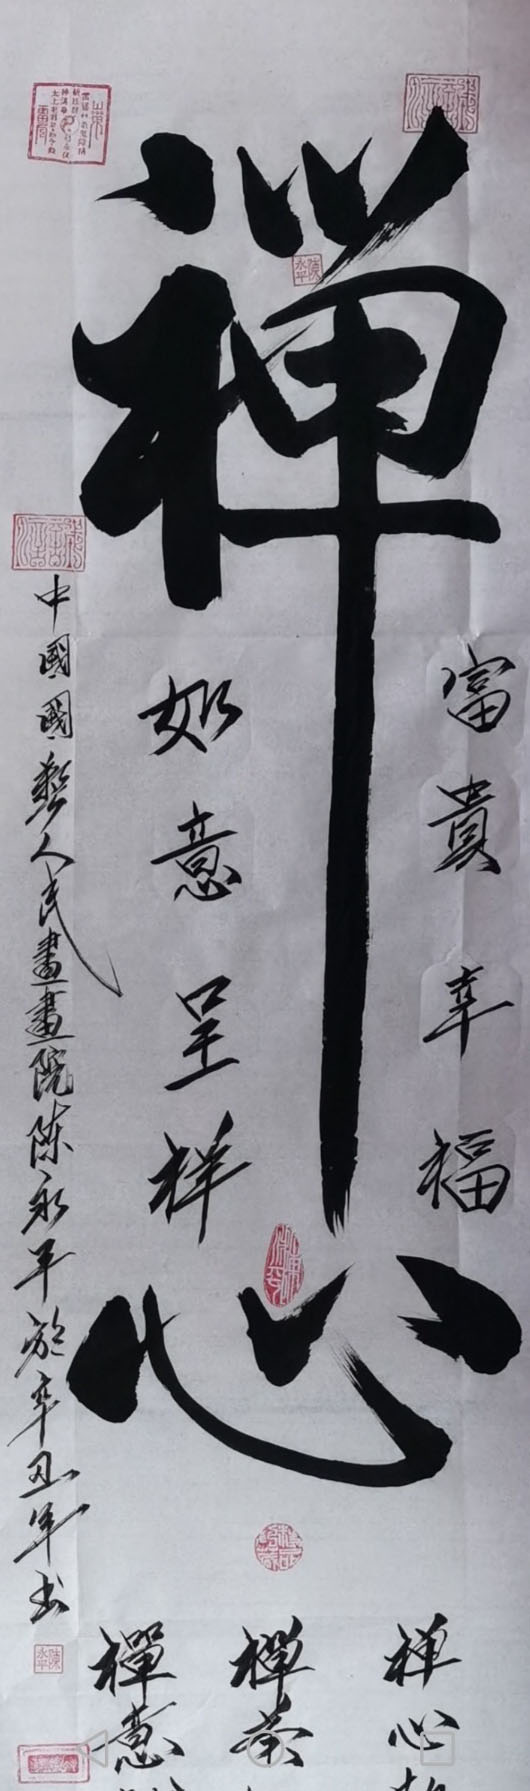 禅心
富貴幸福
如意呈祥
中國國藝人民畫畫院陈永平於辛丑年书
禅心
禪茶
禪意
陳永平